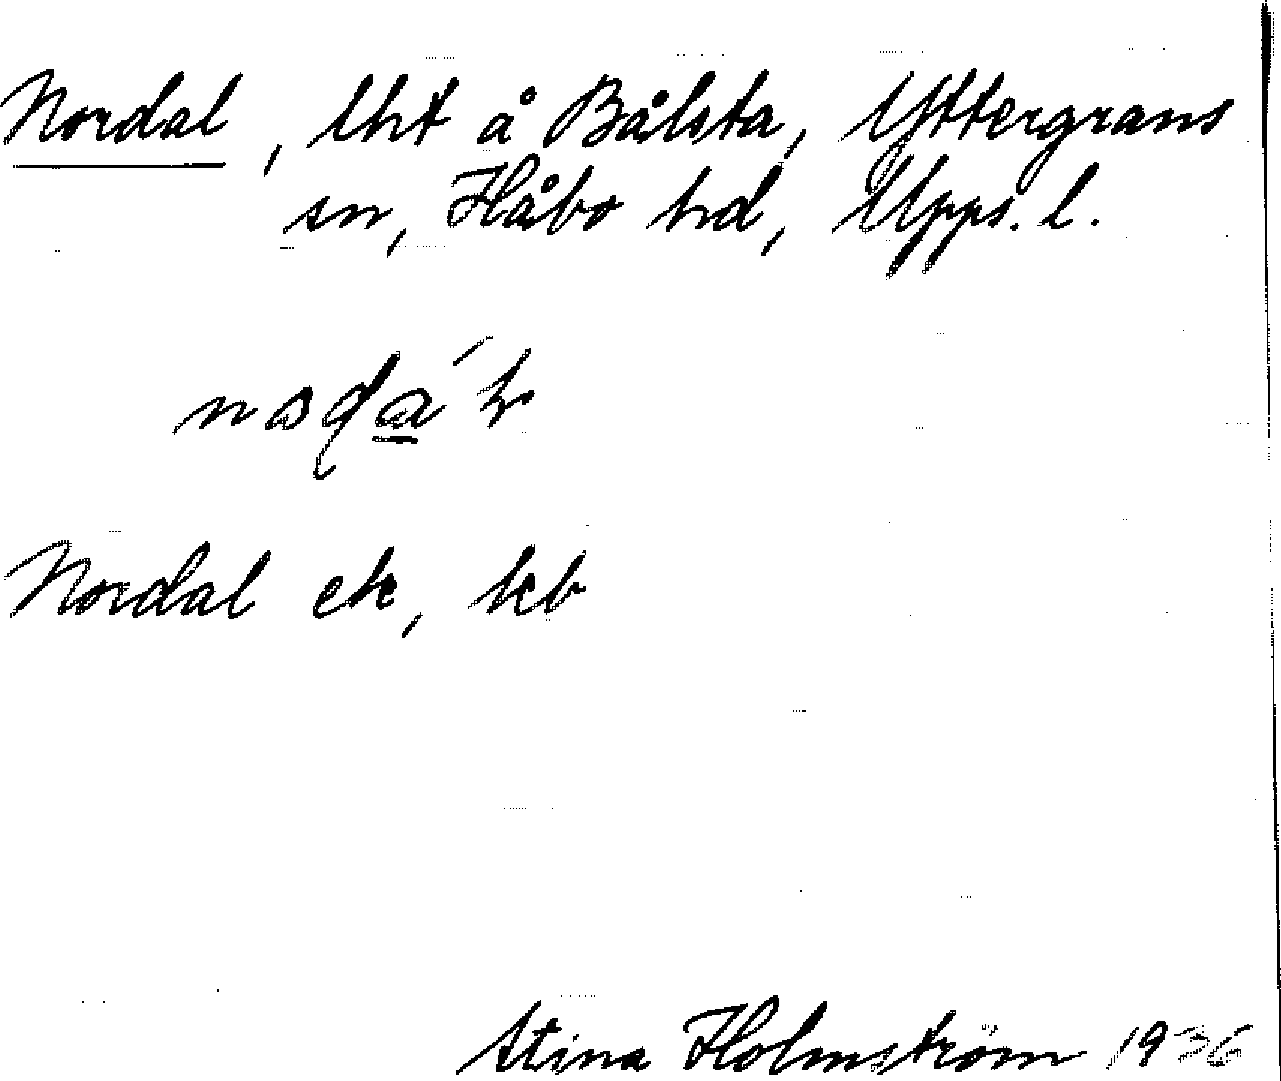 Nordal, lht å Bålsta, Yttergrans
sn, Håbo hd, Upps. l.
Nordal ek, kb
Stina Holmström 1936